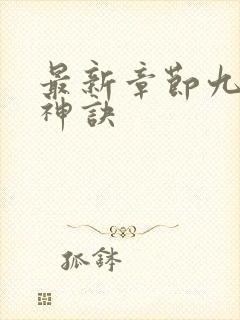 最新章節九
神訣
狐鉢